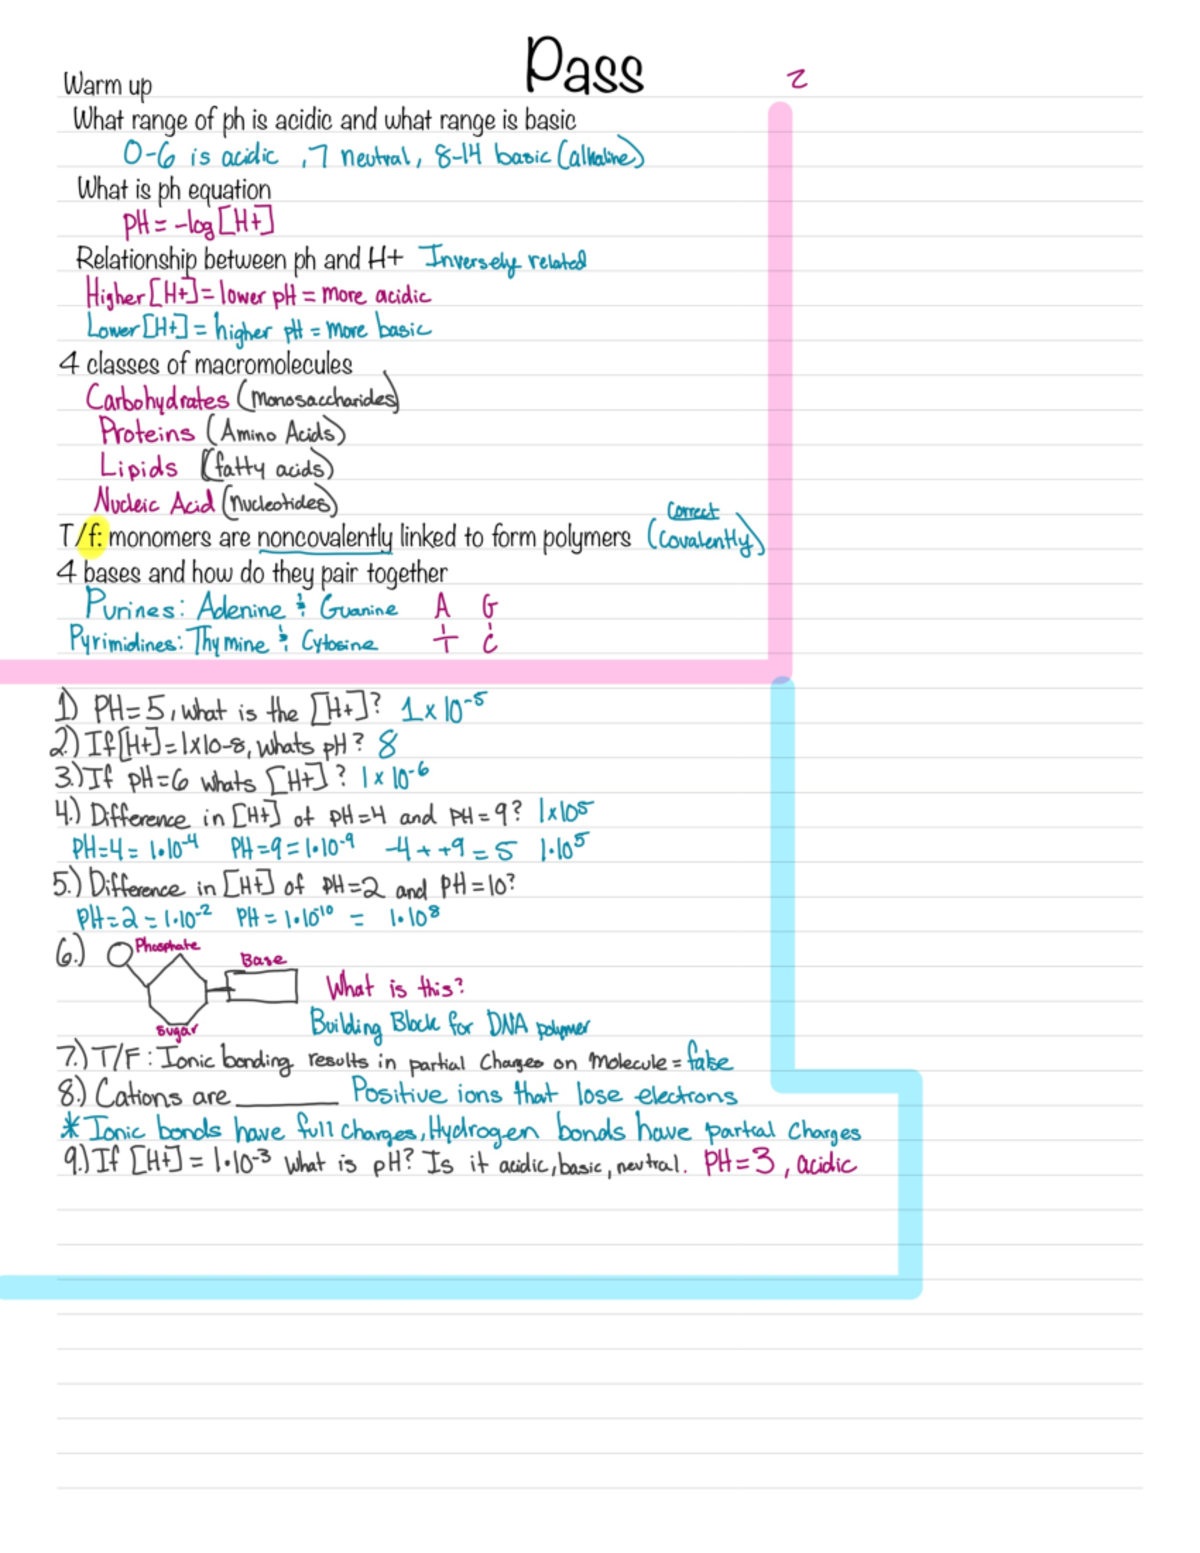 Pass
2
Warm up
What range of ph is acidic and what range is basic
0-6 is acidic , 7 neutral, 8-14 basic (alkaline)
What is ph equation
pH = -log[H+]
Relationship between ph and H+ Inversely related
Higher [H+] = lower pH = more acidic
Lower [H+] = higher pH = more basic
4 classes of macromolecules
Carbohydrates (Monosaccharides)
Proteins (Amino Acids)
Lipids (fatty acids)
Nucleic Acid (nucleotides)
Correct
T/f: monomers are noncovalently linked to form polymers (Covalently)
4 bases and how do they pair together
Purines: Adenine & Guanine A G
Pyrimidines: Thymine & Cytosine T C
1) PH=5, what is the [H+]? 1x10⁻⁵
2.) If [H+]=1x10-8, whats pH? 8
3.) If pH=6 whats [H+]? 1x10⁻⁶
4.) Difference in [H+] of pH=4 and pH=9? 1x10⁵
PH=4= 1•10⁻⁴ PH=9=1•10⁻⁹ -4++9=5 1•10⁵
5.) Difference in [H+] of pH=2 and pH=10?
PH=2=1•10⁻² PH=1•10¹⁰ = 1•10⁸
6.) Phosphate
Base
What is this?
Sugar
Building Block for DNA polymer
7.) T/F: Ionic bonding results in partial Charges on Molecule = false
8.) Cations are ______ Positive ions that lose electrons
* Ionic bonds have full charges, Hydrogen bonds have partial Charges
9.) If [H+] = 1•10⁻³ what is pH? Is it acidic, basic, neutral. PH=3, acidic